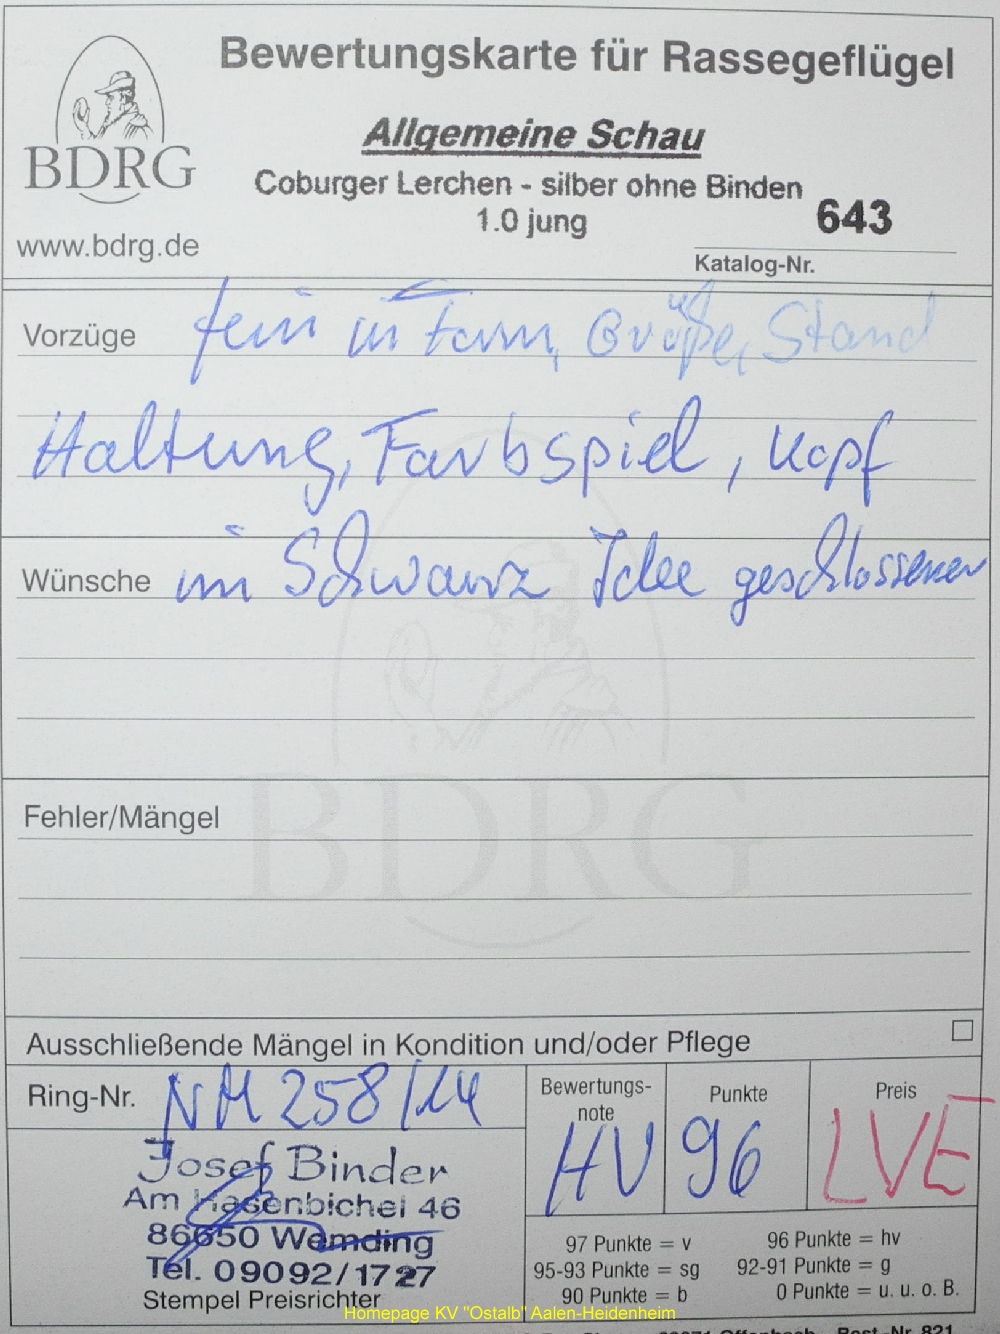 Bewertungskarte für Rassegeflügel
Allgemeine Schau
BDRG
Coburger Lerchen - silber ohne Binden
1.0 jung
643
www.bdrg.de
Katalog-Nr.
Vorzüge fein in Form, Größe, Stand
Haltung, Farbspiel, Kopf
Wünsche im Schwanz Idee geschlossener
BDRG
Fehler/Mängel
Ausschließende Mängel in Kondition und/oder Pflege
Ring-Nr. NM 258/14
Bewertungs-
note
Punkte
Preis
HV 96 LVE
Josef Binder
Am Hasenbichel 46
86650 Wemding
Tel. 09092/1727
Stempel Preisrichter
97 Punkte = v 96 Punkte = hv
95-93 Punkte = sg 92-91 Punkte = g
90 Punkte = b 0 Punkte = u. u. o. B.
Homepage KV "Ostalb" Aalen-Heidenheim
Best.-Nr. 821